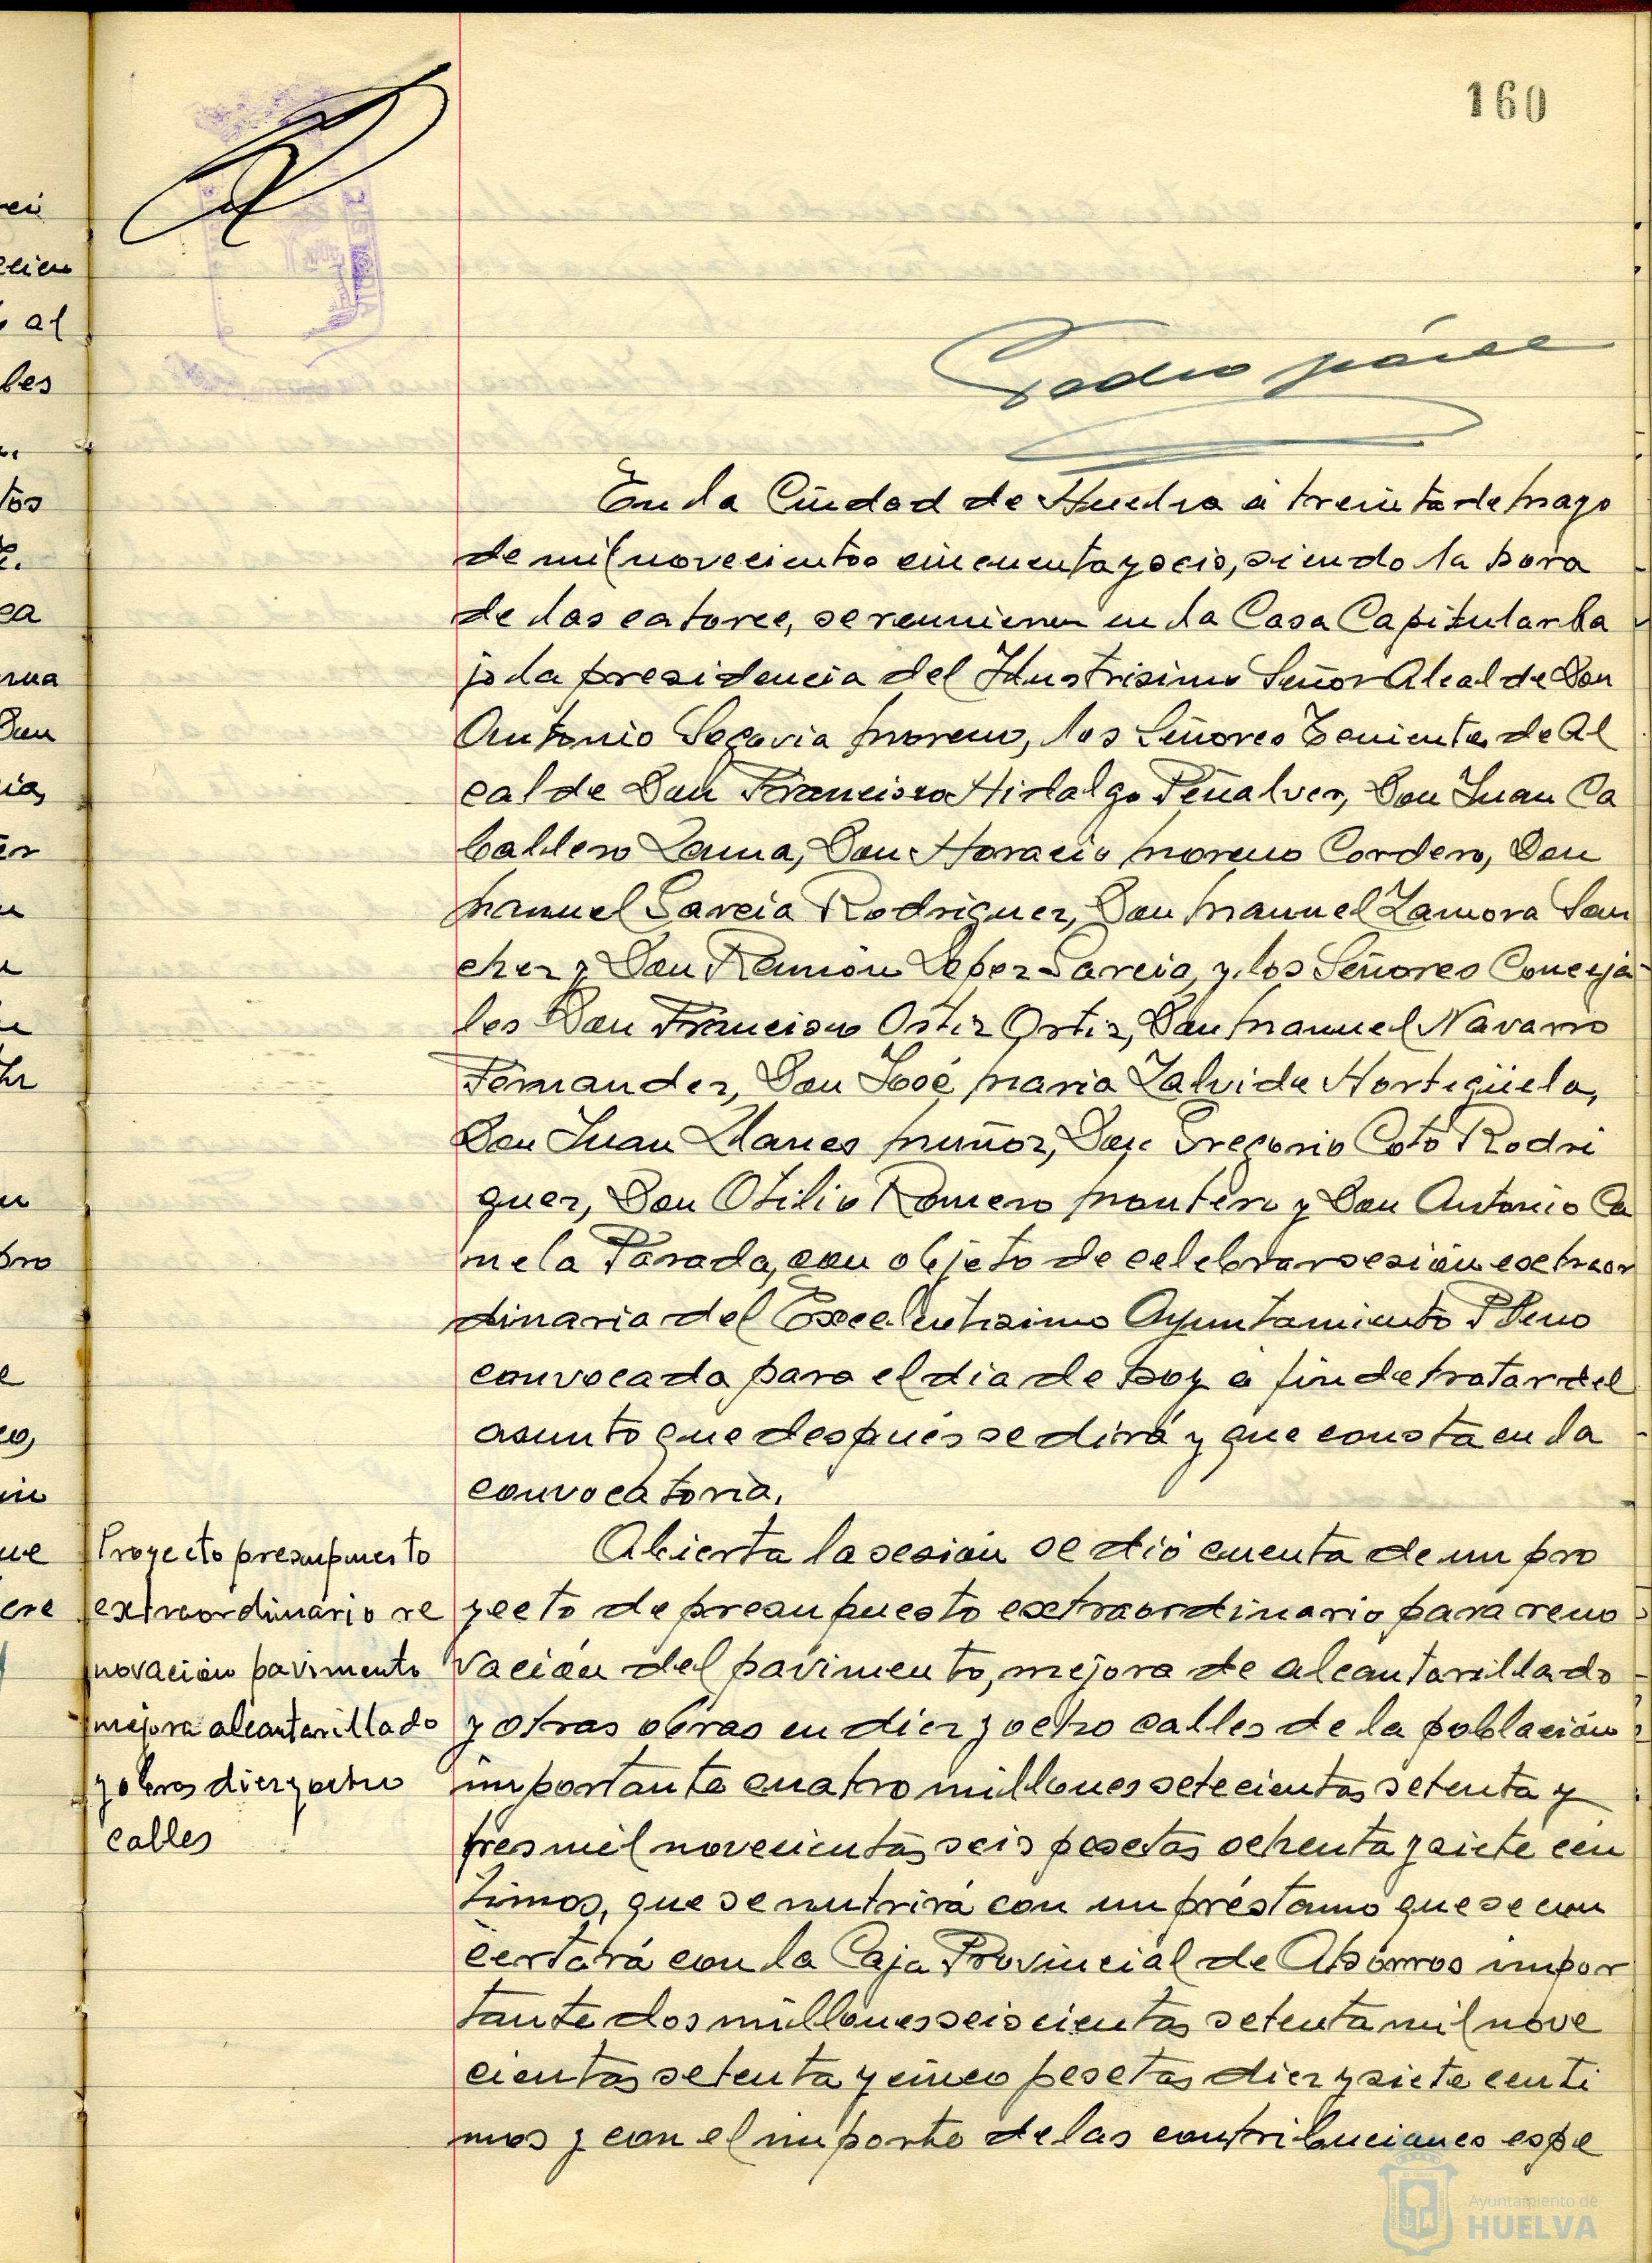 160
En la Ciudad de Huelva a treinta de Mayo
de mil novecientos cincuenta y seis, siendo la hora
de las catorce, se reunieron en la Casa Capitular ba
jo la presidencia del Ilustrisimo Señor Alcalde Don
Antonio Segovia Moreno, los Señores Tenientes de Al
calde Don Francisco Hidalgo Peñalver, Don Juan Ca
ballero Lama, Don Horacio Moreno Cordero, Don
Manuel Garcia Rodriguez, Don Manuel Zamora San
chez y Don Ramón López Garcia, y los Señores Conceja
les Don Francisco Ortiz Ortiz, Don Manuel Navarro
Fernandez, Don José Maria Zalvide Hortigüela,
Don Juan Llanes Muñoz, Don Gregorio Coto Rodri
guez, Don Otilio Romero Montero y Don Antonio Ca
mela Parada, con objeto de celebrar sesión extraor
dinaria del Excelentisimo Ayuntamiento Pleno
convocada para el dia de hoy a fin de tratar del
asunto que después se dirá y que consta en la
convocatoria.
Proyecto presupuesto
extraordinario re
novación pavimento
mejora alcantarillado
y obras diez y ocho
calles
Abierta la sesión se dió cuenta de un pro
yecto de presupuesto extraordinario para reno
vación del pavimento, mejora de alcantarillado
y otras obras en diez y ocho calles de la población
importante cuatro millones setecientas setenta y
tres mil novecientas seis pesetas ochenta y siete cén
timos, que se nutrirá con un préstamo que se con
certará con la Caja Provincial de Ahorros impor
tante dos millones seiscientas setenta mil nove
cientas setenta y cinco pesetas diez y siete centi
mos y con el importe de las contribuciones espe
Ayuntamiento de
HUELVA